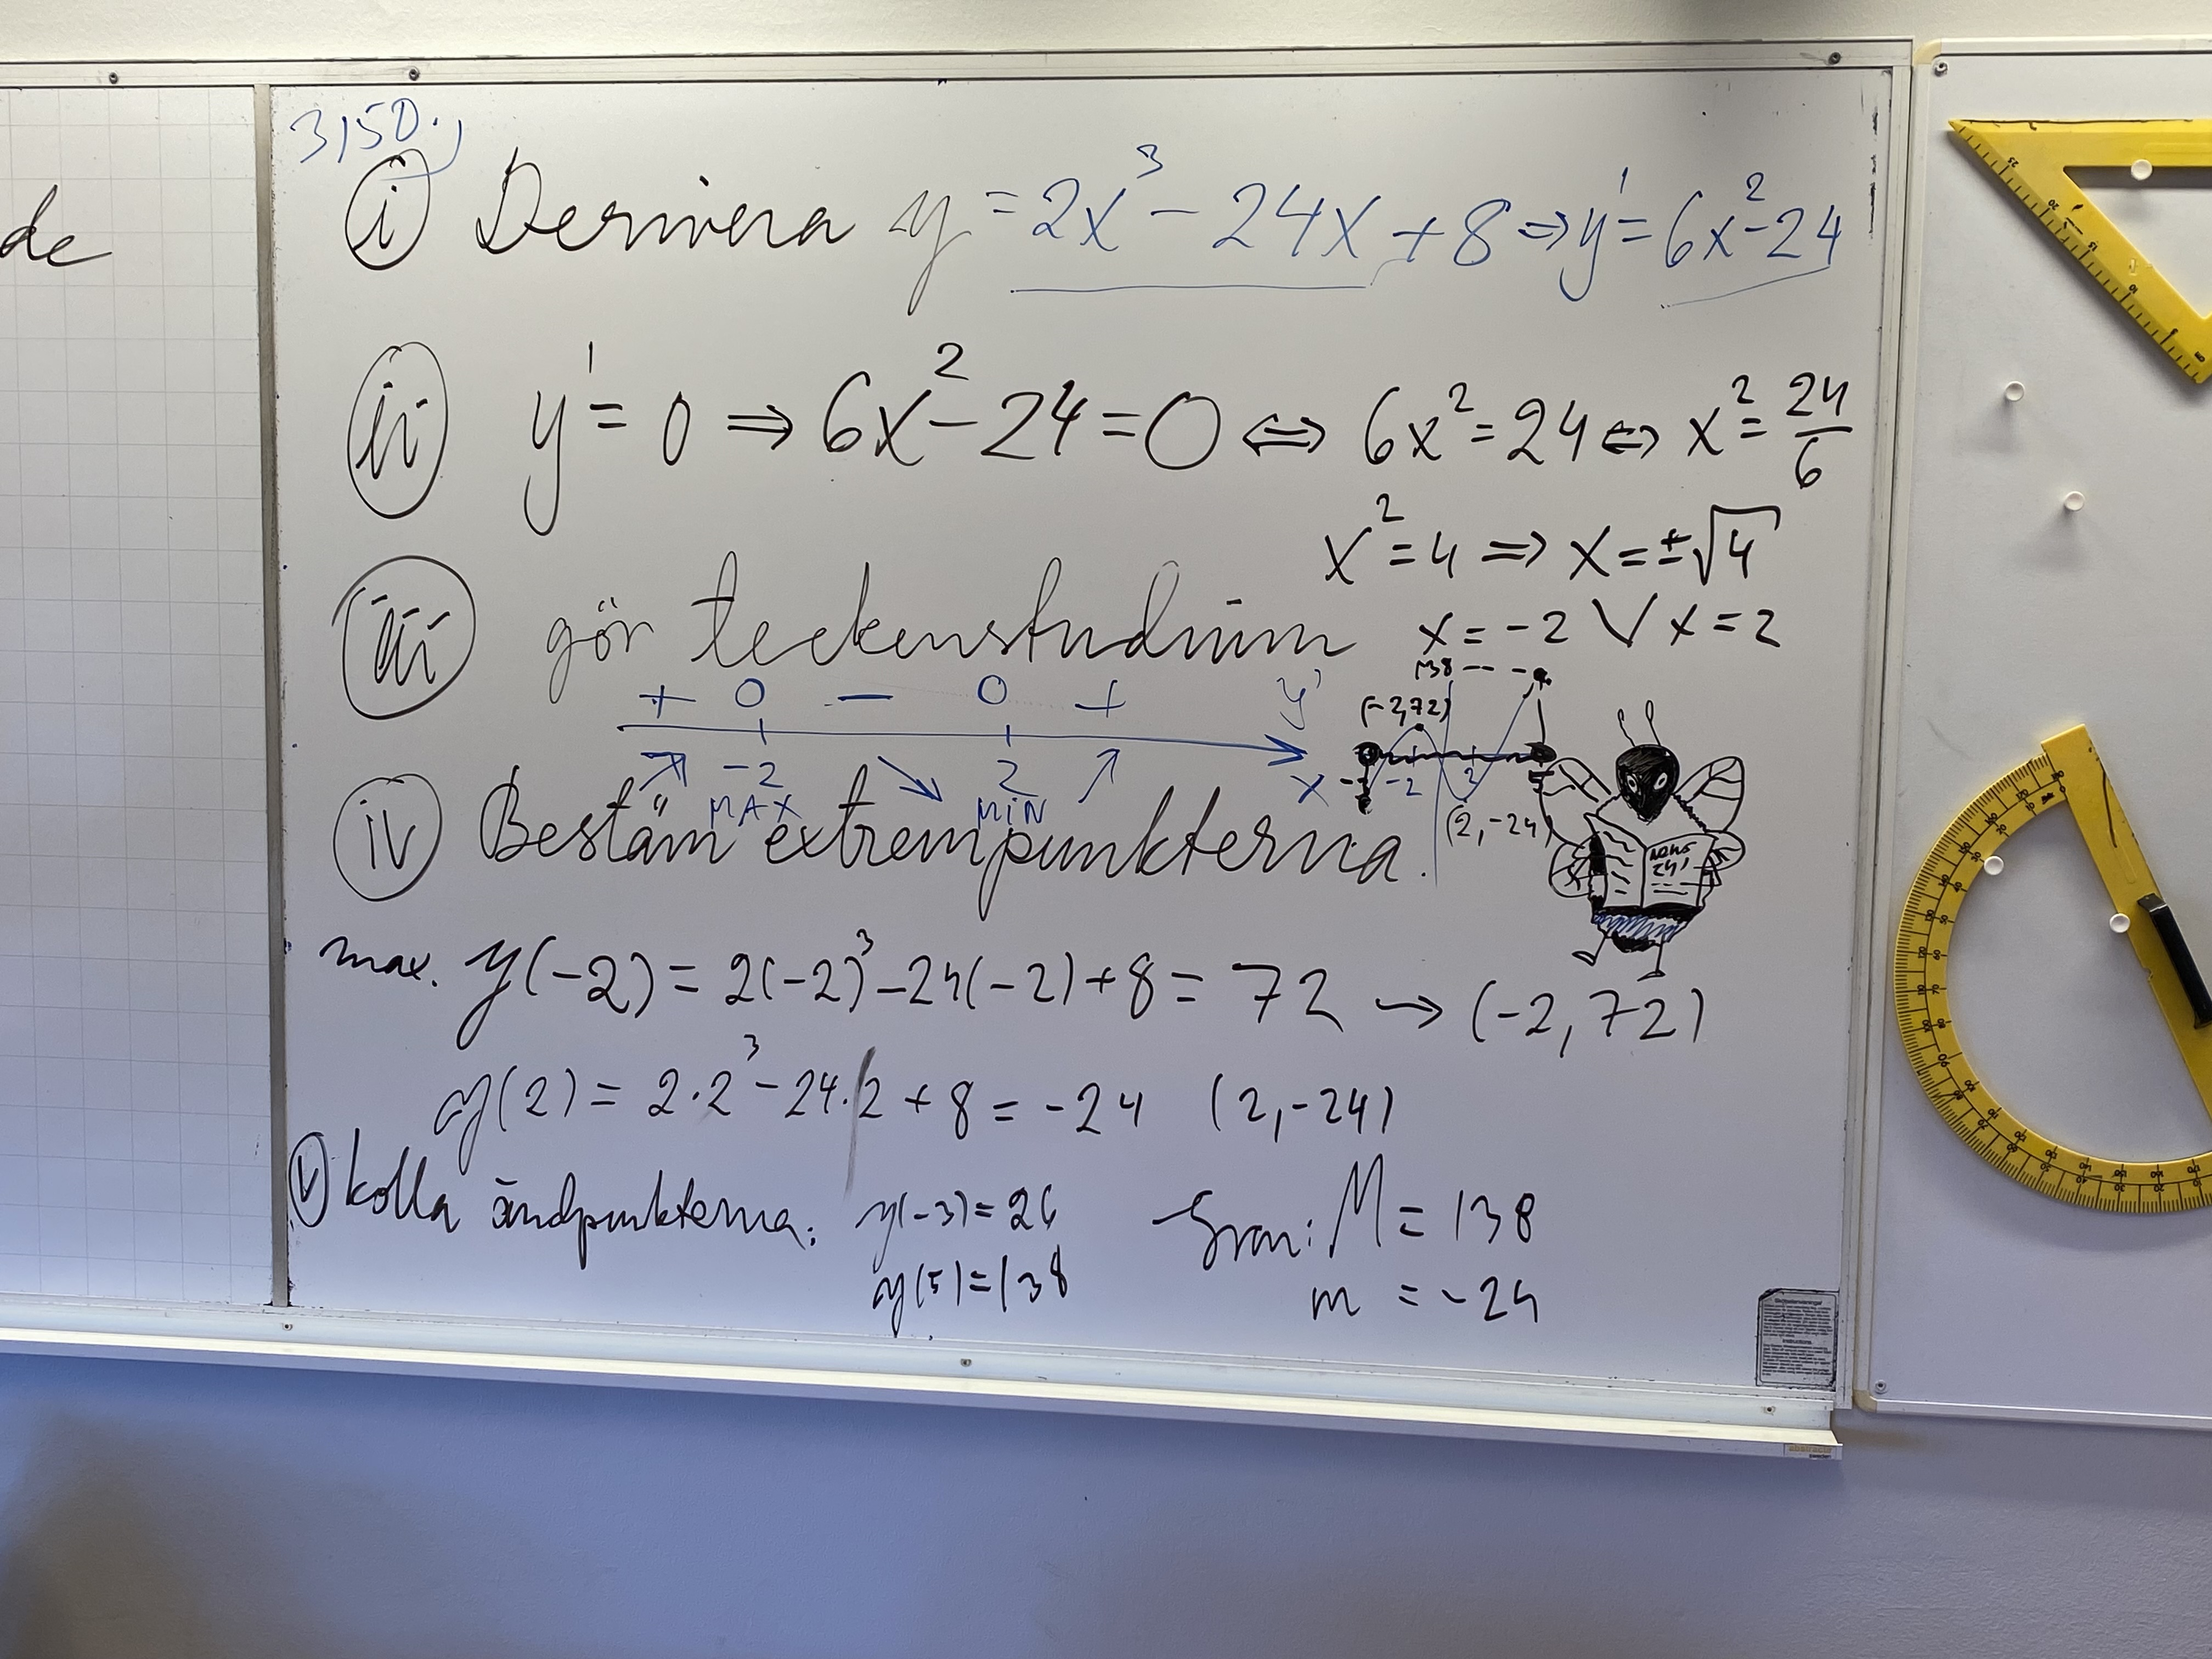 de
3,50.)
i Derivera y = 2x³ - 24x + 8 ⇒ y' = 6x² - 24
ii y' = 0 ⇒ 6x² - 24 = 0 ⇔ 6x² = 24 ⇔ x² = 24/6
x² = 4 ⇒ x = ±√4
x = -2 ∨ x = 2
iii gör teckenstudium
+ 0 - 0 + y'
↗ -2 ↘ 2 ↗ x
MAX MIN
138
(-2,72)
-2 2 5
(2,-24)
NEWS
iv Bestäm extrempunkterna.
max. y(-2) = 2(-2)³ - 24(-2) + 8 = 72 → (-2, 72)
y(2) = 2·2³ - 24·2 + 8 = -24 (2, -24)
v kolla ändpunkterna: y(-3) = 26
y(5) = 138
Svar: M = 138
m = -24